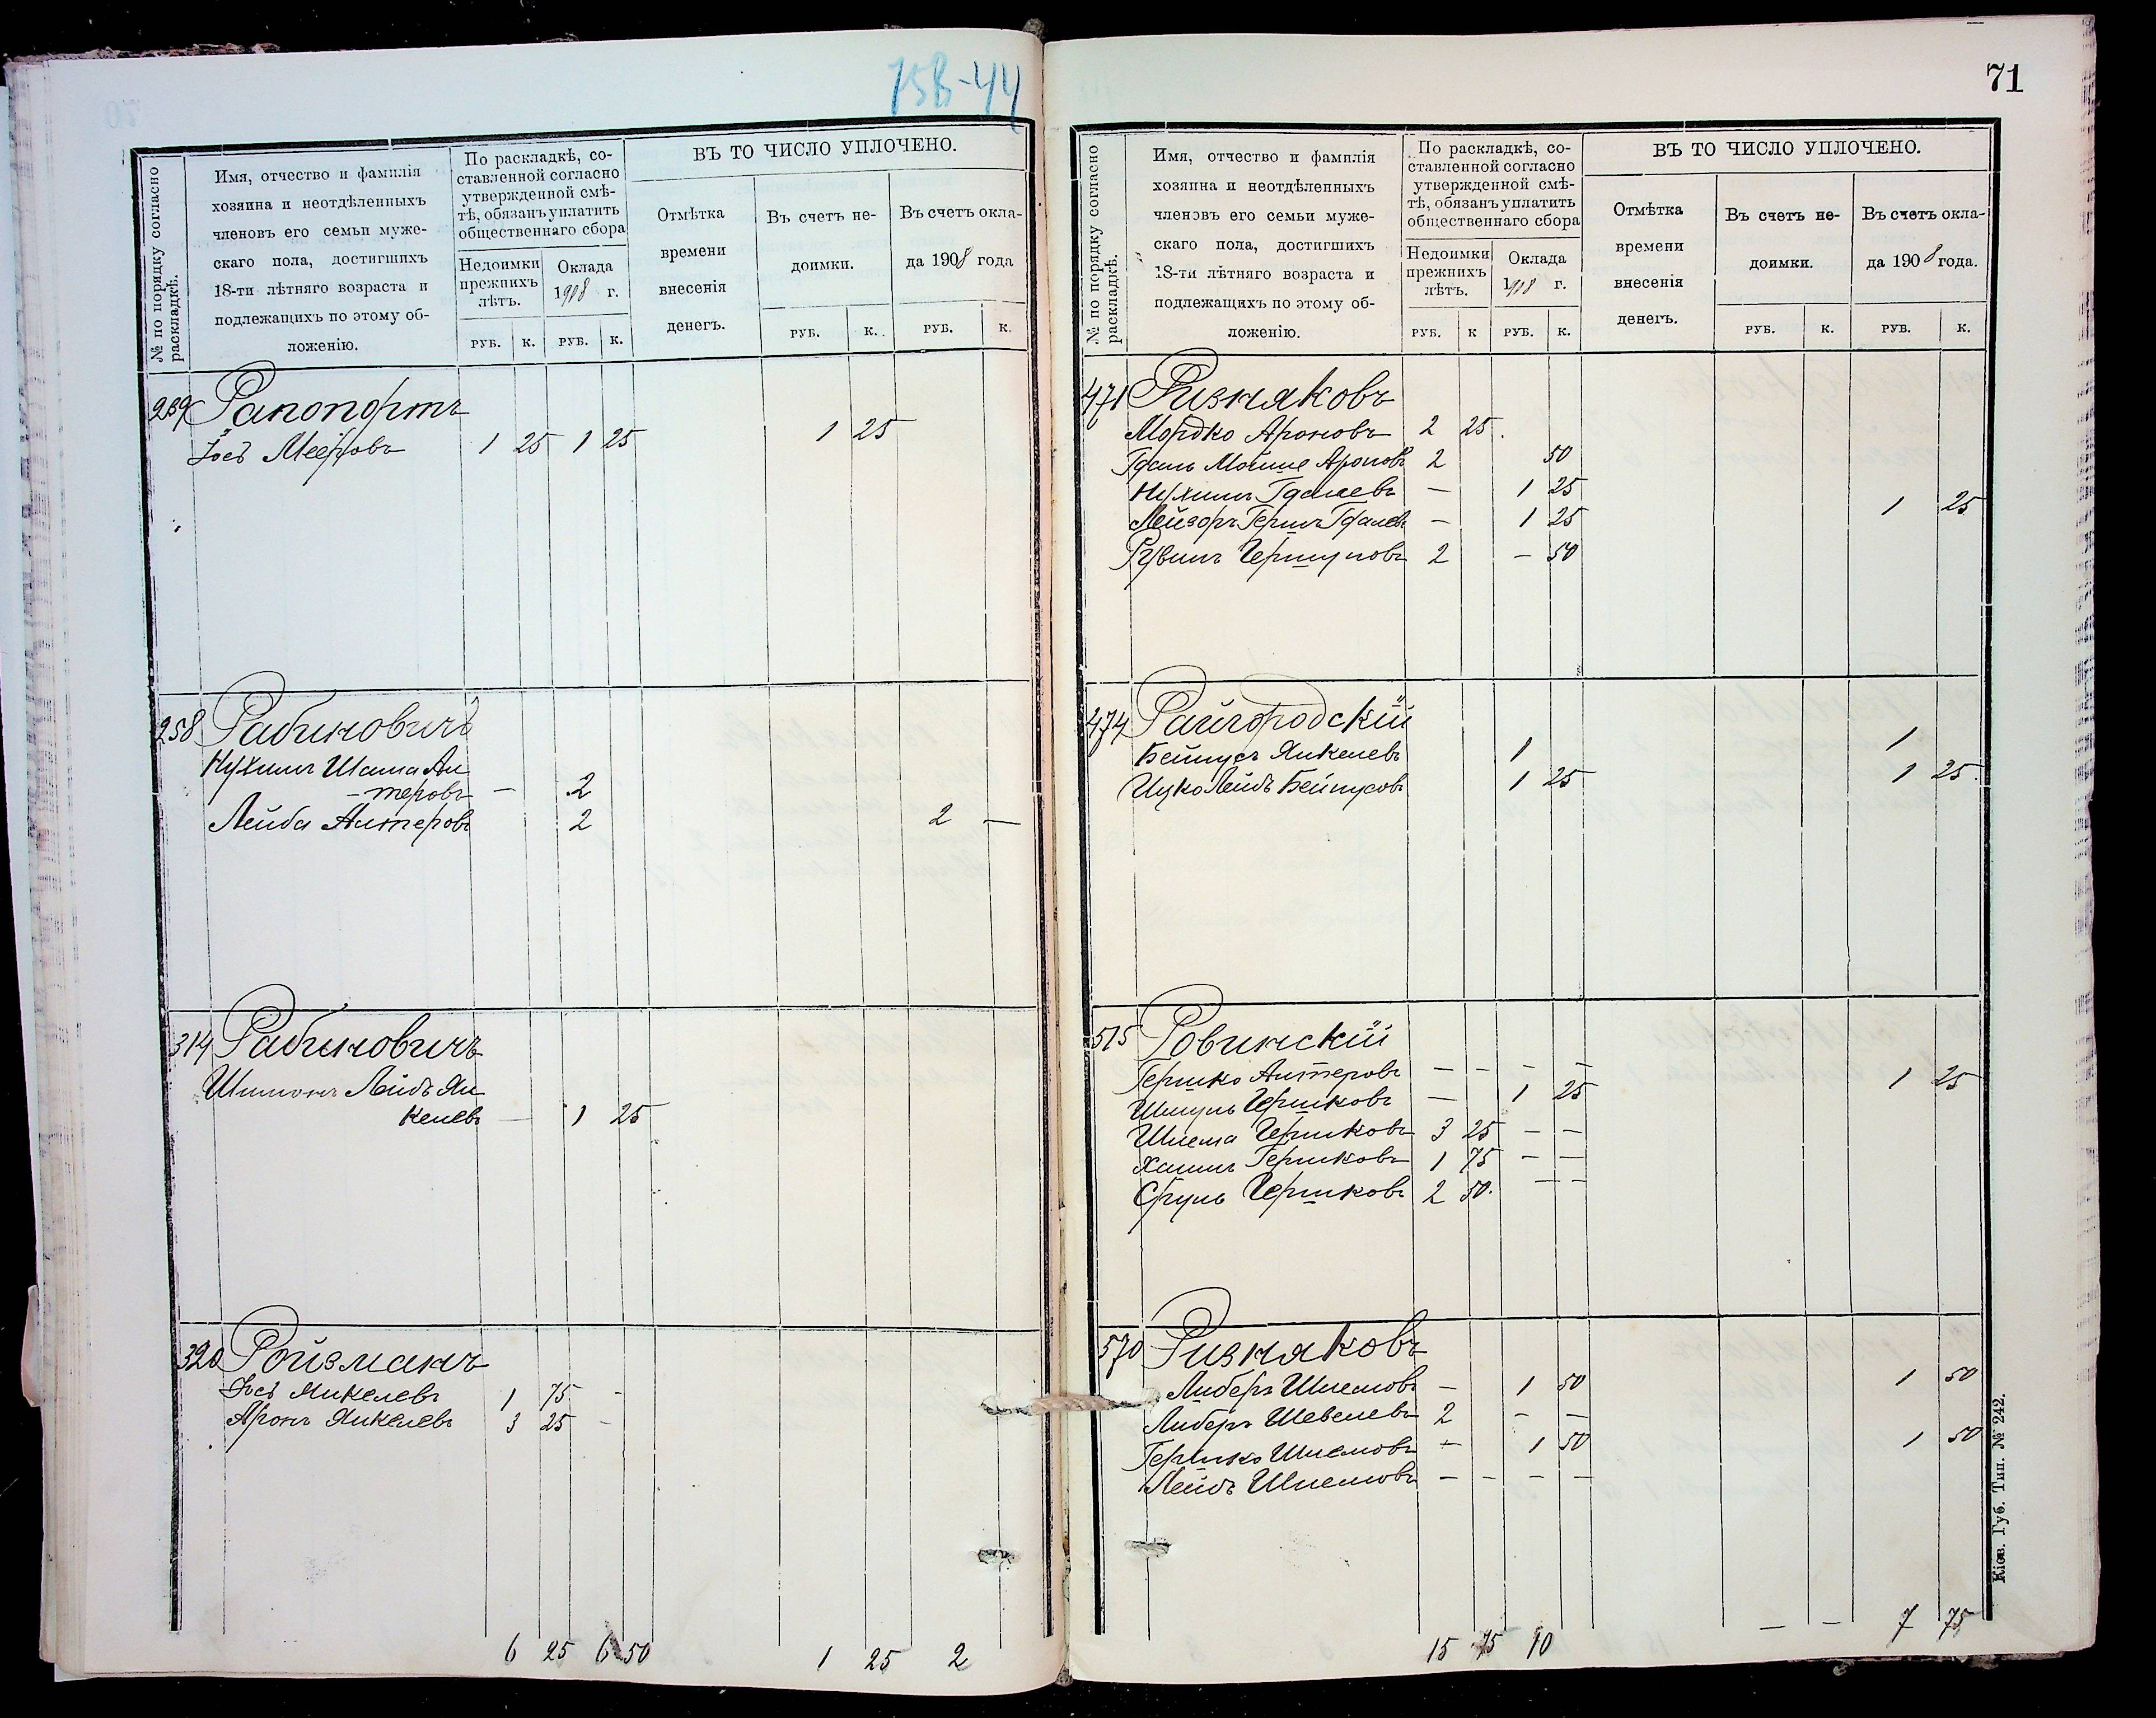 758-44
№ по порядку согласно раскладкѣ.
Имя, отчество и фамилія
хозяина и неотдѣленныхъ
членовъ его семьи муже-
скаго пола, достигшихъ
18-ти лѣтняго возраста и
подлежащихъ по этому об-
ложенію.
По раскладкѣ, со-
ставленной согласно
утвержденной смѣ-
тѣ, обязанъ уплатить
общественнаго сбора
Недоимки
прежнихъ
лѣтъ.
Оклада
1908 г.
РУБ. К. РУБ. К.
ВЪ ТО ЧИСЛО УПЛОЧЕНО.
Отмѣтка
времени
внесенія
денегъ.
Въ счетъ не-
доимки.
Въ счетъ окла-
да 1908 года
РУБ. К. РУБ. К.
Рапопортъ
Іосъ Мееровъ 1 25 1 25 1 25
258 Рабиновичъ
Нухимъ Шама Ал-
-теровъ — 2
Лейба Алтеровъ 2 2 —
314 Рабиновичъ
Шимонъ Лейбъ Ян
келевъ — 1 25
320 Ройзманъ
Іосъ Янкелевъ 1 75 -
Аронъ Янкелевъ 3 25 -
6 25 6 50 1 25 2
71
№ по порядку согласно раскладкѣ.
Имя, отчество и фамилія
хозяина и неотдѣленныхъ
членовъ его семьи муже-
скаго пола, достигшихъ
18-ти лѣтняго возраста и
подлежащихъ по этому об-
ложенію.
По раскладкѣ, со-
ставленной согласно
утвержденной смѣ-
тѣ, обязанъ уплатить
общественнаго сбора
Недоимки
прежнихъ
лѣтъ.
Оклада
1908 г.
РУБ. К РУБ. К.
ВЪ ТО ЧИСЛО УПЛОЧЕНО.
Отмѣтка
времени
внесенія
денегъ.
Въ счетъ не-
доимки.
Въ счетъ окла-
да 1908 года.
РУБ. К. РУБ. К.
471 Ризняковъ
Мордко Ароновъ 2 25.
Гдаль Мойше Ароновъ 2 50
Нухимъ Гдалевъ — 1 25
Лейзоръ Гершъ Гдалевъ — 1 25 1 25
Рувинъ Гершуновъ 2 — 50
474 Райгородскій
Бейнусъ Янкелевъ 1 1
Ицко Лейбъ Бейнусовъ 1 25 1 25.
515 Ровинскій
Гершко Алтеровъ — — — —
Шмуль Гершковъ — 1 25 1 25
Шлема Гершковъ 3 25 — —
Хаимъ Гершковъ 1 75 — —
Сруль Гершковъ 2 50. — —
570 Ризняковъ
Либеръ Шлемовъ — 1 50 1 50
Либеръ Шевелевъ 2 — —
Гершко Шлемовъ — 1 50 1 50
Лейбъ Шлемовъ — — — —
15 75 10 — — 7 75
Кіев. Губ. Тип. № 242.